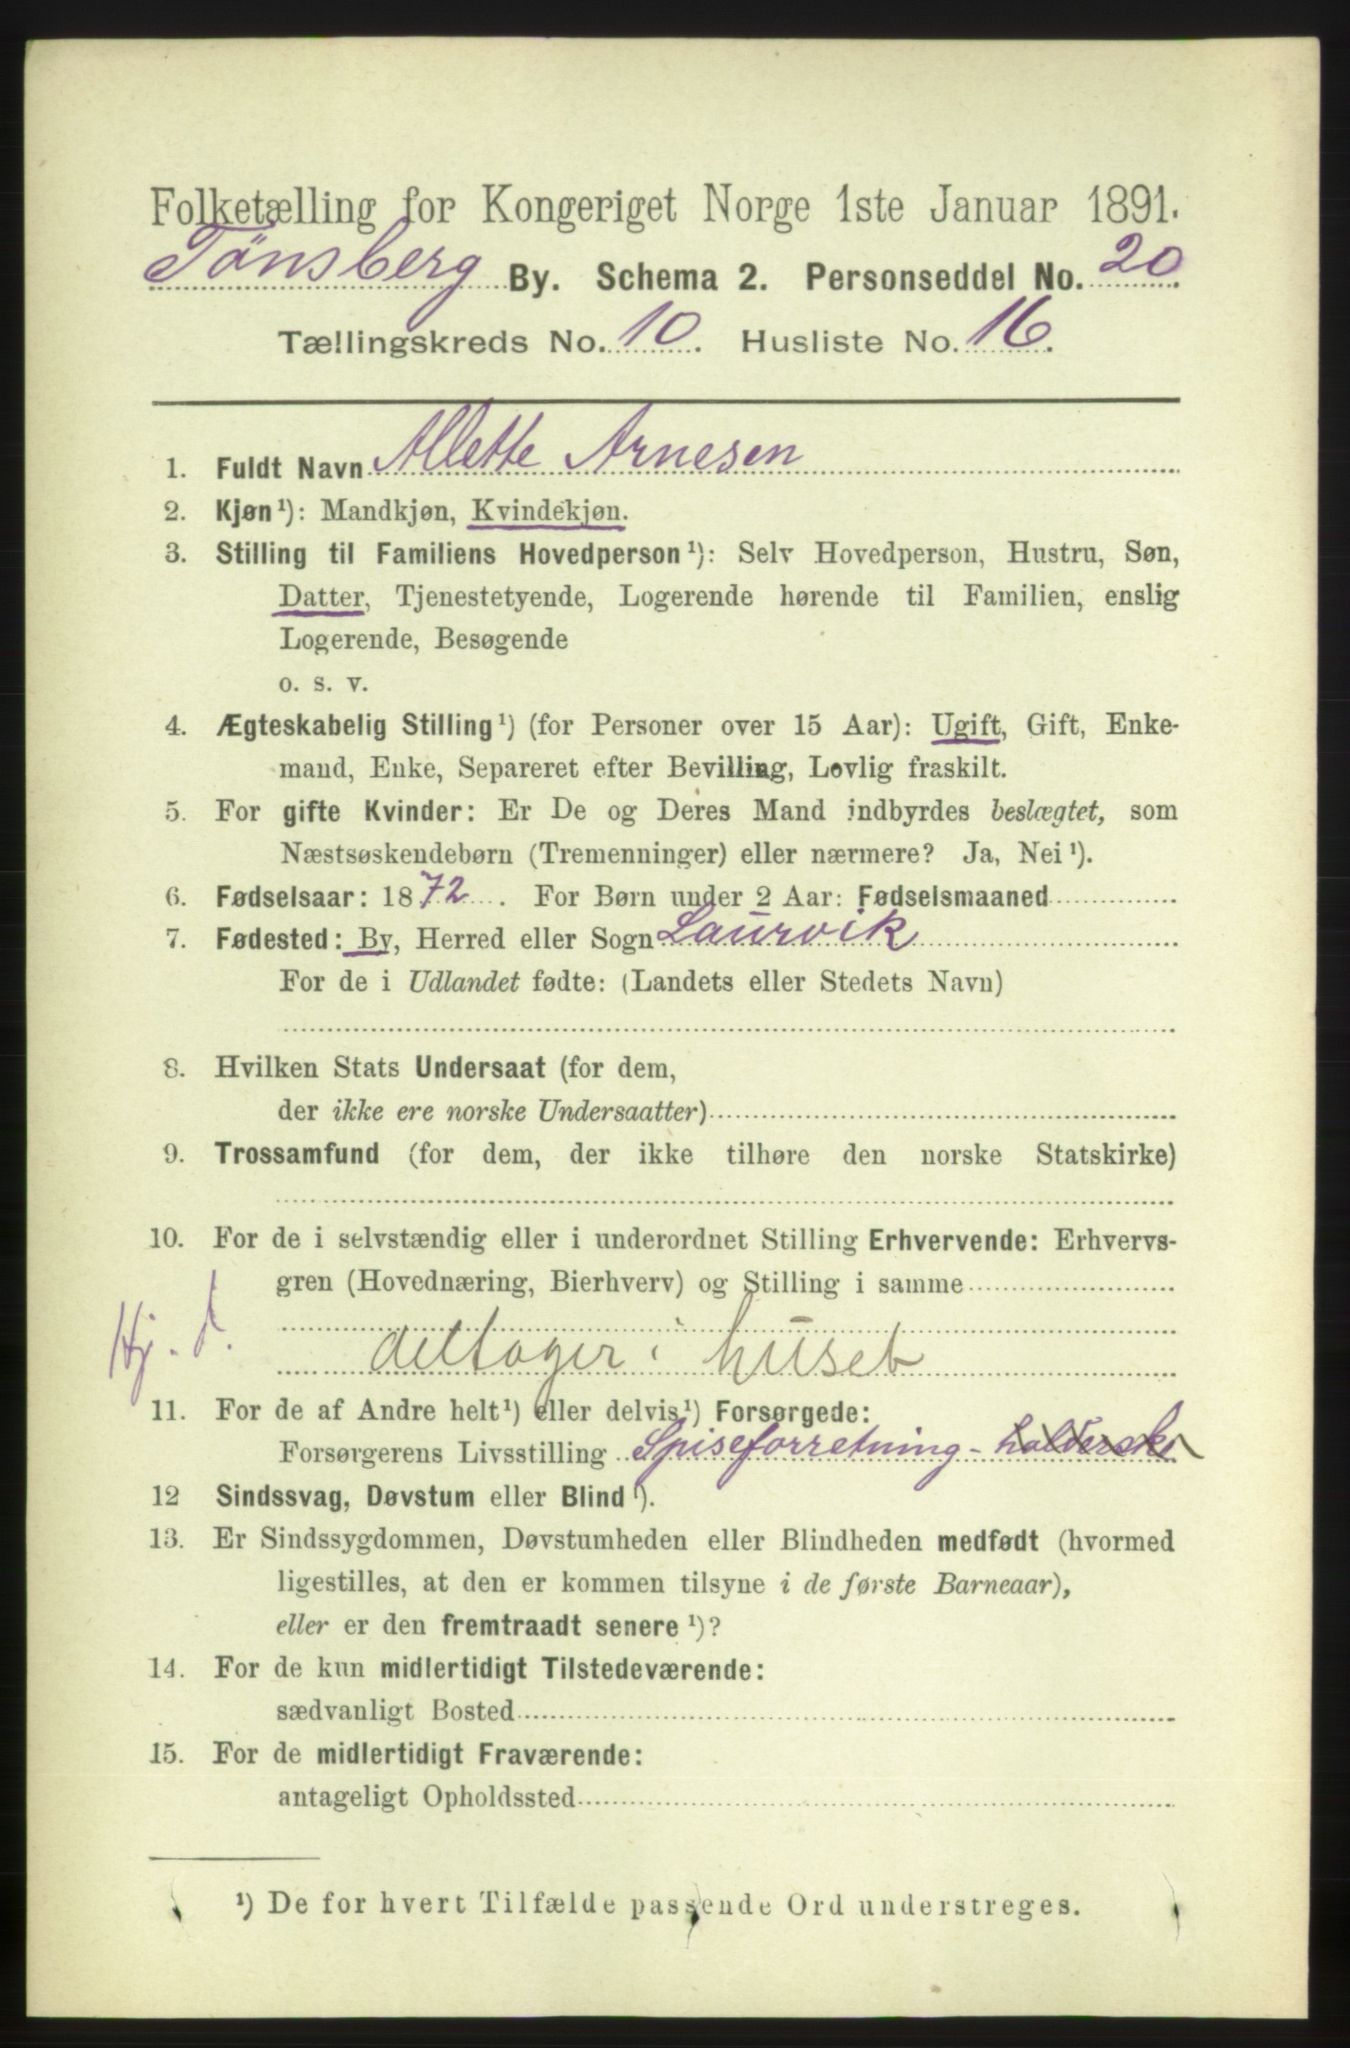 Folketælling for Kongeriget Norge 1ste Januar 1891.
Tönsberg By. Schema 2. Personseddel No. 20
Tællingskreds No. 10. Husliste No. 16.
1. Fuldt Navn Alette Arnesen
2. Kjøn¹): Mandkjøn, Kvindekjøn.
3. Stilling til Familiens Hovedperson¹): Selv Hovedperson, Hustru, Søn,
Datter, Tjenestetyende, Logerende hørende til Familien, enslig
Logerende, Besøgende
o. s. v.
4. Ægteskabelig Stilling¹) (for Personer over 15 Aar): Ugift, Gift, Enke-
mand, Enke, Separeret efter Bevilling, Lovlig fraskilt.
5. For gifte Kvinder: Er De og Deres Mand indbyrdes beslægtet, som
Næstsøskendebørn (Tremenninger) eller nærmere? Ja, Nei¹).
6. Fødselsaar: 1872. For Børn under 2 Aar: Fødselsmaaned
7. Fødested: By, Herred eller Sogn Laurvik
For de i Udlandet fødte: (Landets eller Stedets Navn)
8. Hvilken Stats Undersaat (for dem,
der ikke ere norske Undersaatter)
9. Trossamfund (for dem, der ikke tilhøre den norske Statskirke)
10. For de i selvstændig eller i underordnet Stilling Erhvervende: Erhvervs-
gren (Hovednæring, Bierhverv) og Stilling i samme
Hj. d. deltager i huset
11. For de af Andre helt¹) eller delvis¹) Forsørgede:
Forsørgerens Livsstilling Spiseforretning-holderske
12 Sindssvag, Døvstum eller Blind¹).
13. Er Sindssygdommen, Døvstumheden eller Blindheden medfødt (hvormed
ligestilles, at den er kommen tilsyne i de første Barneaar),
eller er den fremtraadt senere¹)?
14. For de kun midlertidigt Tilstedeværende:
sædvanligt Bosted
15. For de midlertidigt Fraværende:
antageligt Opholdssted
¹) De for hvert Tilfælde passende Ord understreges.